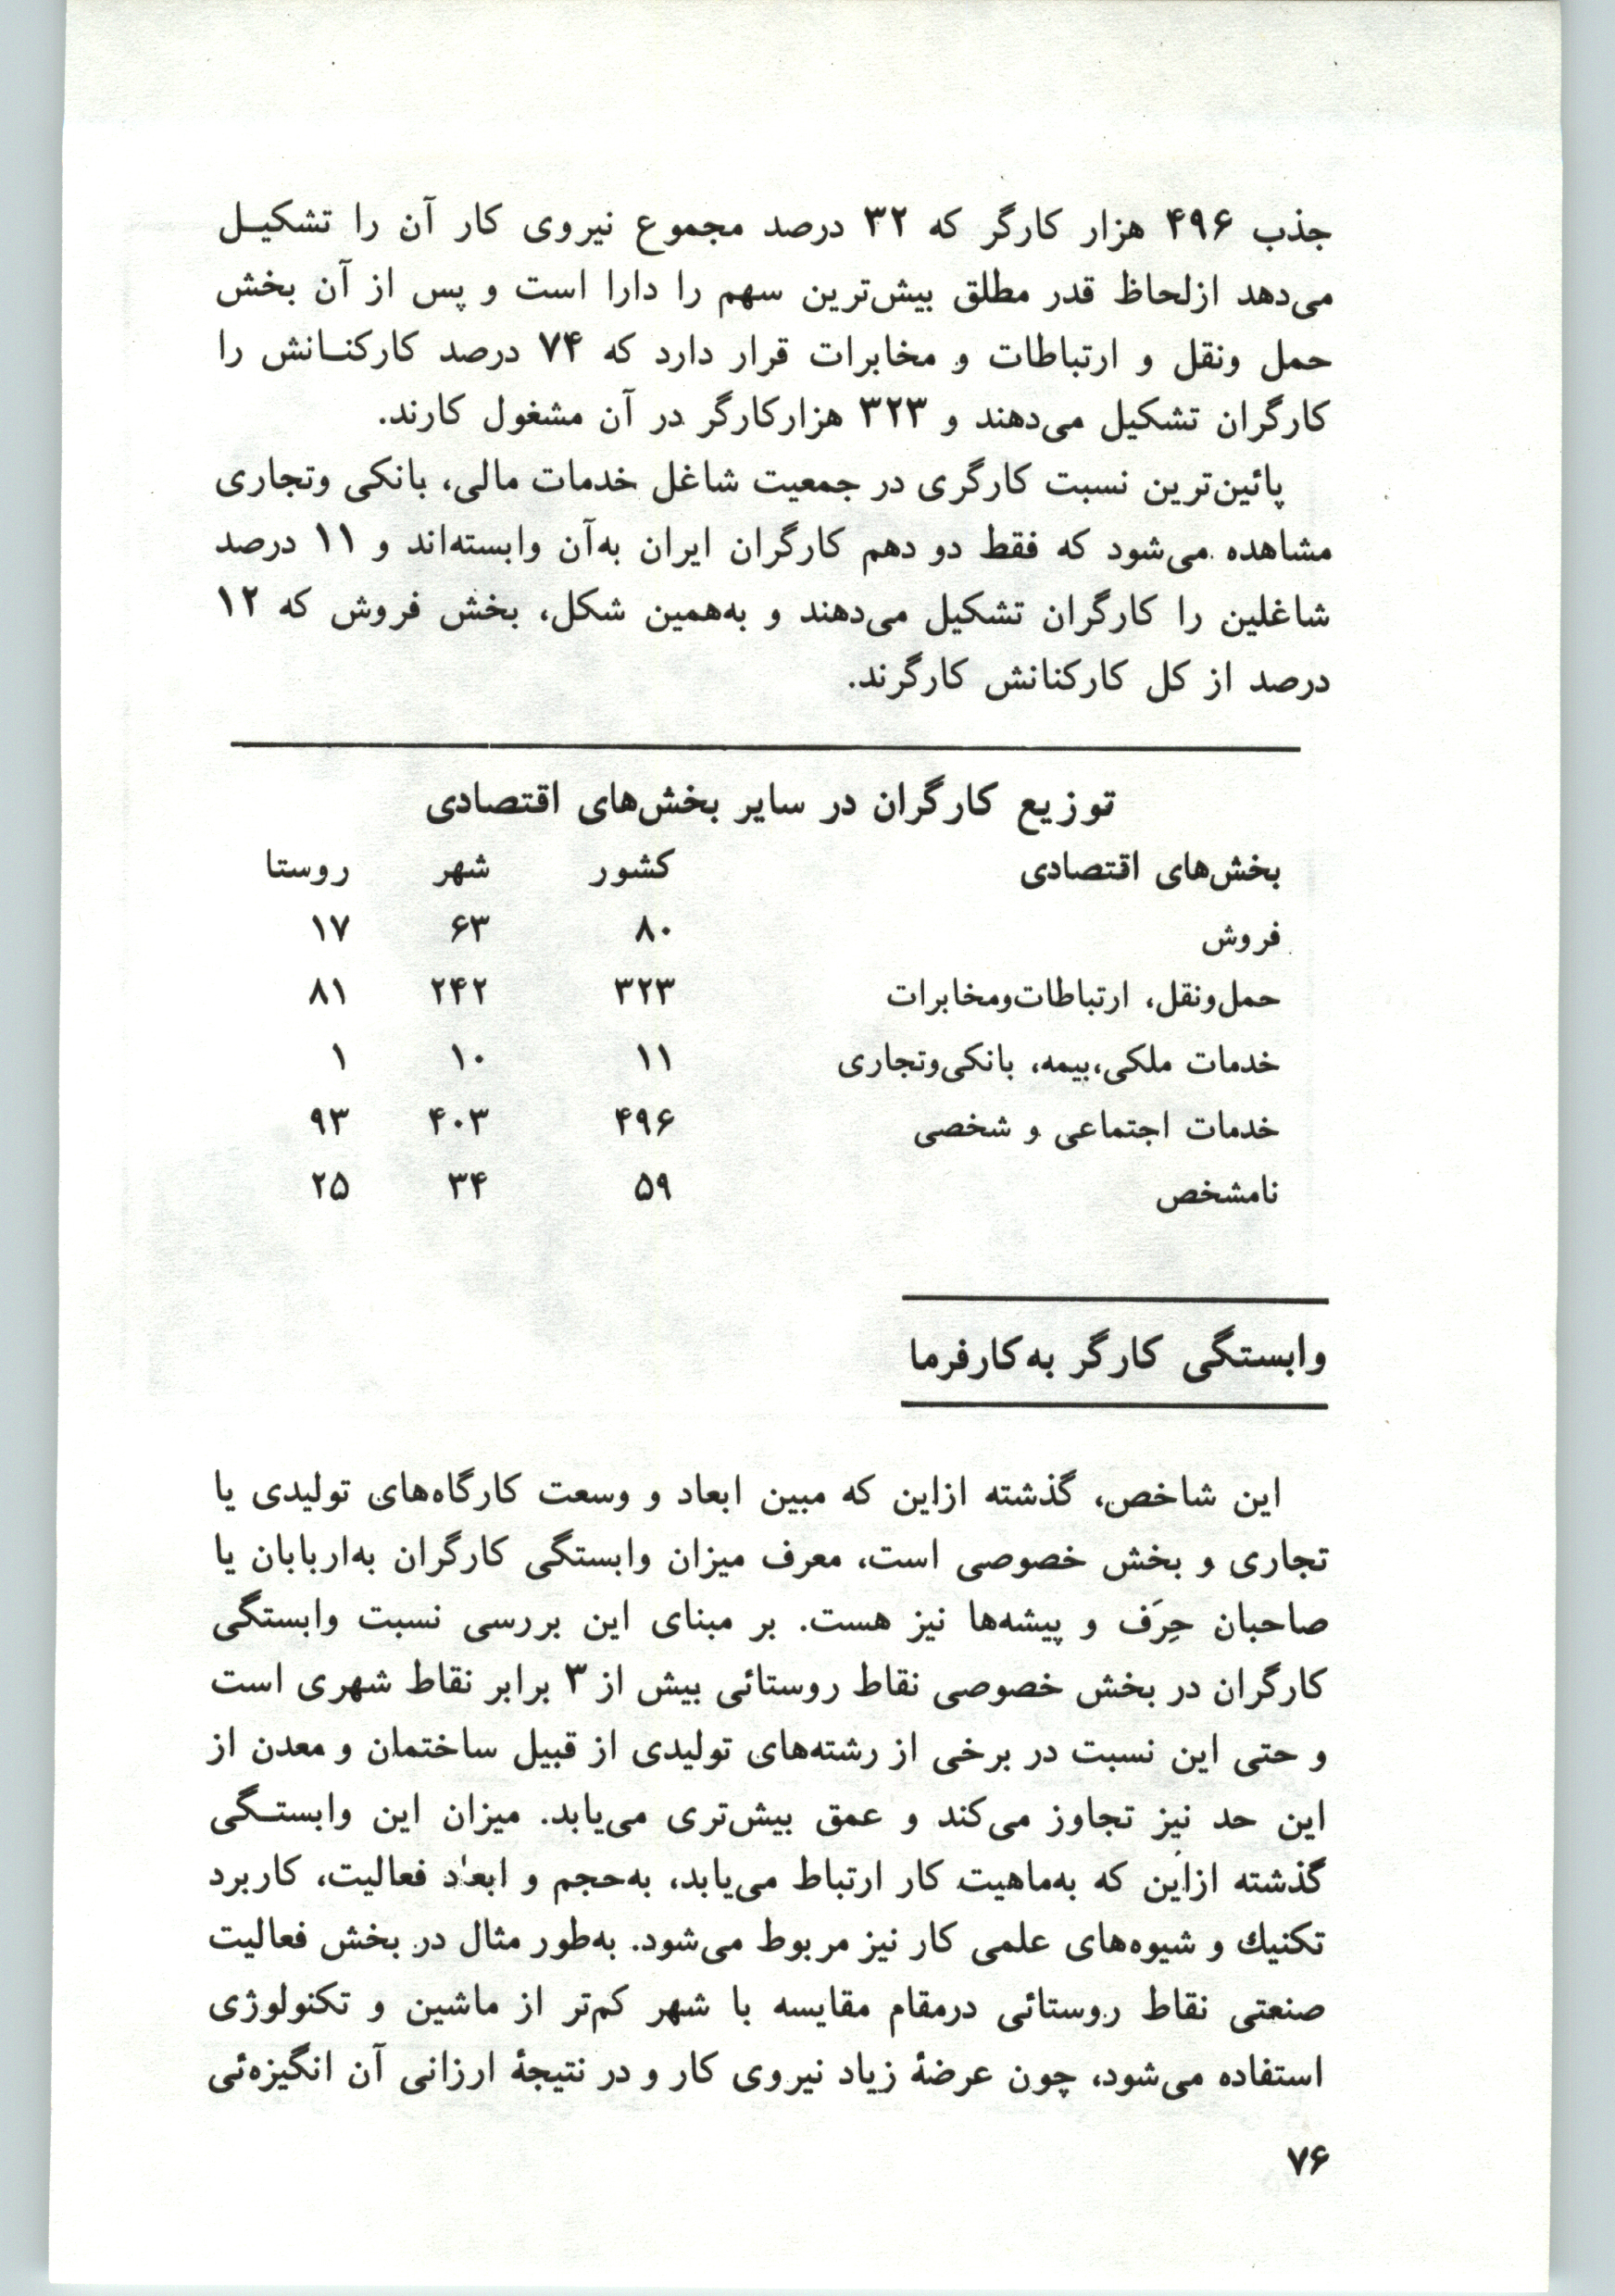 جذب ۴۹۶ هزار کارگر که ۳۲ درصد مجموع نیروی کار آن را تشکیـل
می‌دهد ازلحاظ قدر مطلق بیش‌ترین سهم را دارا است و پس از آن بخش
حمل ونقل و ارتباطات و مخابرات قرار دارد که ۷۴ درصد کارکنـانش را
کارگران تشکیل می‌دهند و ۳۲۳ هزارکارگر در آن مشغول کارند.
پائین‌ترین نسبت کارگری در جمعیت شاغل خدمات مالی، بانکی وتجاری
مشاهده می‌شود که فقط دو دهم کارگران ایران به‌آن وابسته‌اند و ۱۱ درصد
شاغلین را کارگران تشکیل می‌دهند و به‌همین شکل، بخش فروش که ۱۲
درصد از کل کارکنانش کارگرند.
توزیع کارگران در سایر بخش‌های اقتصادی
بخش‌های اقتصادی کشور شهر روستا
فروش ۸۰ ۶۳ ۱۷
حمل‌ونقل، ارتباطات‌ومخابرات ۳۲۳ ۲۴۲ ۸۱
خدمات ملکی،بیمه، بانکی‌وتجاری ۱۱ ۱۰ ۱
خدمات اجتماعی و شخصی ۴۹۶ ۴۰۳ ۹۳
نامشخص ۵۹ ۳۴ ۲۵
وابستگی کارگر به‌کارفرما
این شاخص، گذشته ازاین که مبین ابعاد و وسعت کارگاه‌های تولیدی یا
تجاری و بخش خصوصی است، معرف میزان وابستگی کارگران به‌اربابان یا
صاحبان حِرَف و پیشه‌ها نیز هست. بر مبنای این بررسی نسبت وابستگی
کارگران در بخش خصوصی نقاط روستائی بیش از ۳ برابر نقاط شهری است
و حتی این نسبت در برخی از رشته‌های تولیدی از قبیل ساختمان و معدن از
این حد نیز تجاوز می‌کند و عمق بیش‌تری می‌یابد. میزان این وابستـگی
گذشته ازاین که به‌ماهیت کار ارتباط می‌یابد، به‌حجم و ابعاد فعالیت، کاربرد
تکنیك و شیوه‌های علمی کار نیز مربوط می‌شود. به‌طور مثال در بخش فعالیت
صنعتی نقاط روستائی درمقام مقایسه با شهر کم‌تر از ماشین و تکنولوژی
استفاده می‌شود، چون عرضهٔ زیاد نیروی کار و در نتیجهٔ ارزانی آن انگیزه‌ئی
۷۶